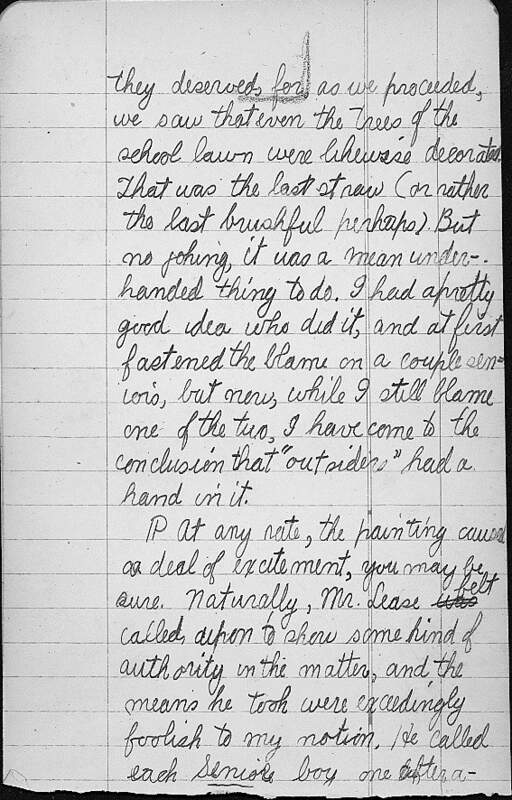 they deserved, for, as we proceeded,
we saw that even the trees of the
school lawn were likewise decorated.
That was the last straw (or rather
the last brushful perhaps). But
no joking, it was a mean under-
handed thing to do. I had a pretty
good idea who did it, and at first
fastened the blame on a couple sen-
iors, but now, while I still blame
one of the two, I have come to the
conclusion that "outsiders" had a
hand in it.
P At any rate, the painting caused
a deal of excitement, you may be
sure. Naturally, Mr. Lease was felt
called upon to show some kind of
authority in the matter, and the
means he took were exceedingly
foolish to my notion. He called
each senior boy one after a-